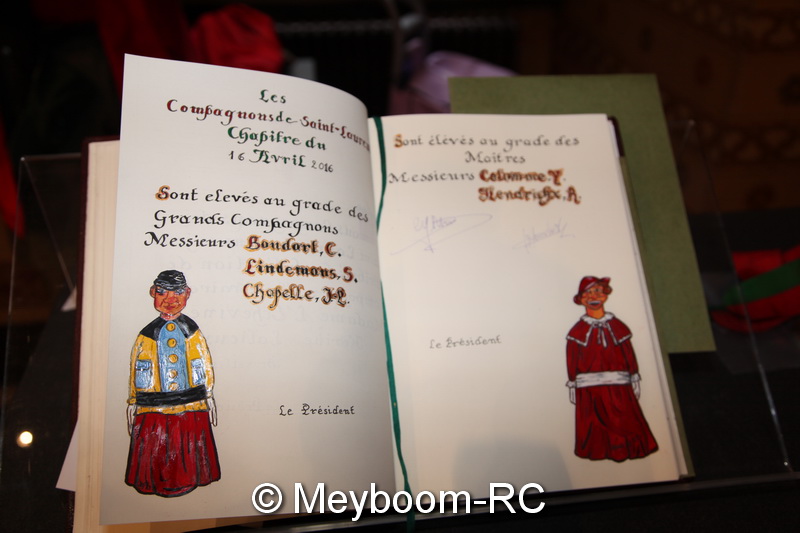 Les
Compagnons de Saint-Lauren
Chapitre du
16 Avril 2016
Sont elevés au grade des
Grands Compagnons
Messieurs Boudart, C.
Lindemans, S.
Chapelle, J-L.
Le Président
Sont élevés au grade des
Maitres
Messieurs Colomme. Y.
Hendrickx, A.
Le Président
© Meyboom-RC